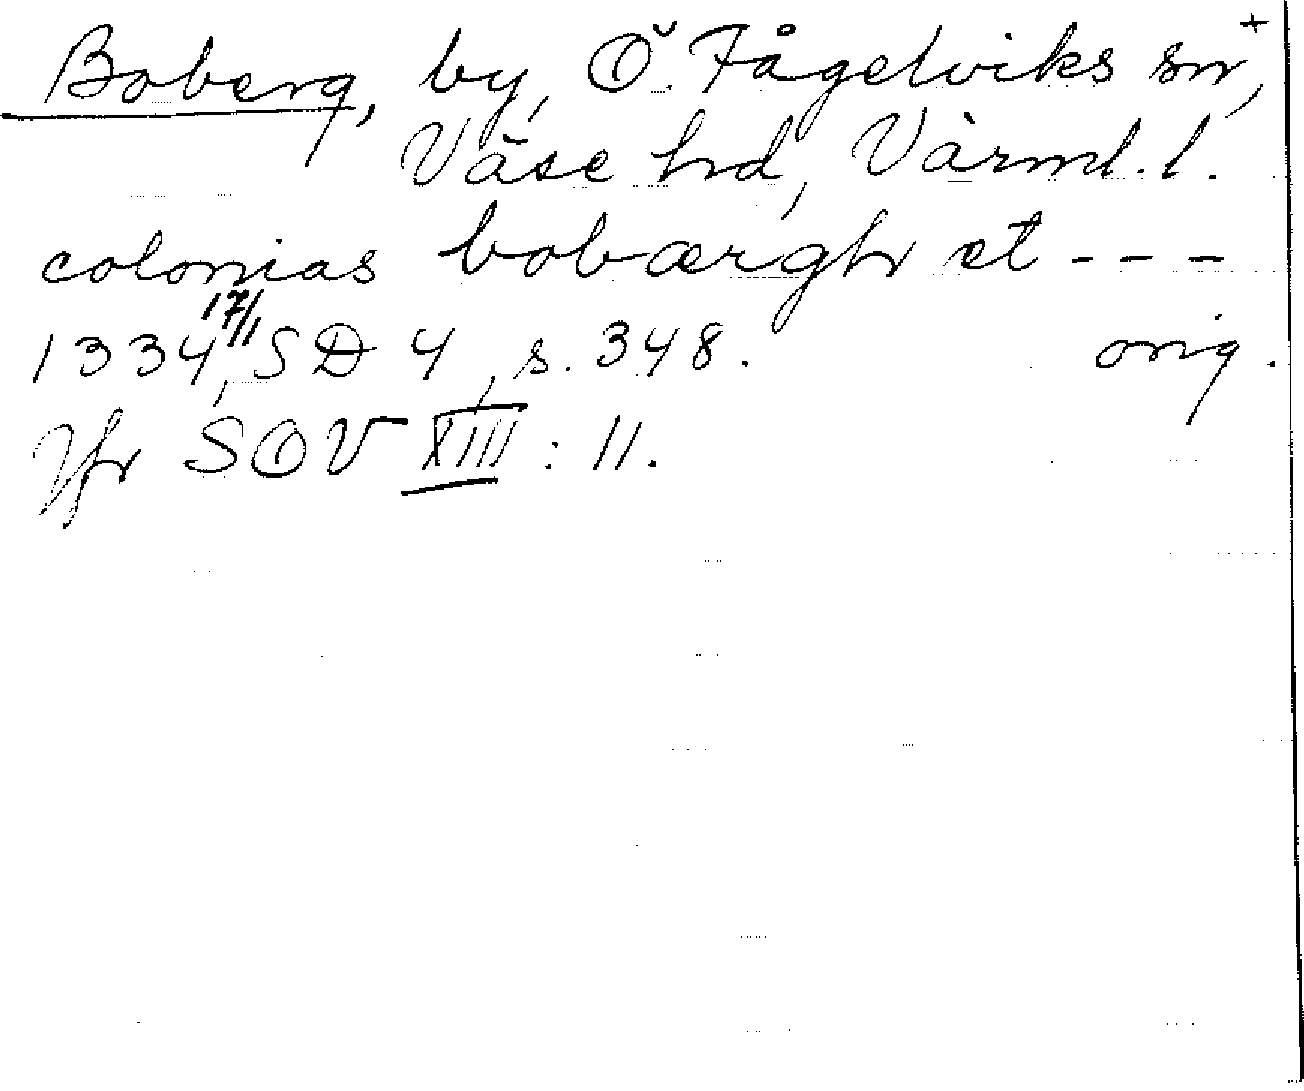 Boberg, by, Ö. Fågelviks sn, +
Väse hd, Värml. l.
colonias bobærgh et - - -
1334 17/1, SD 4, s. 348. orig.
Jfr SOV XIII : 11.